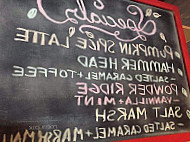 Specials
PUMPKIN SPICE LATTE
HAMMER HEAD
- SALTED CARAMEL + TOFFEE
POWDER RIDGE
- VANILLA + MINT
SALT MARSH
- SALTED CARAMEL + MARSHMALL